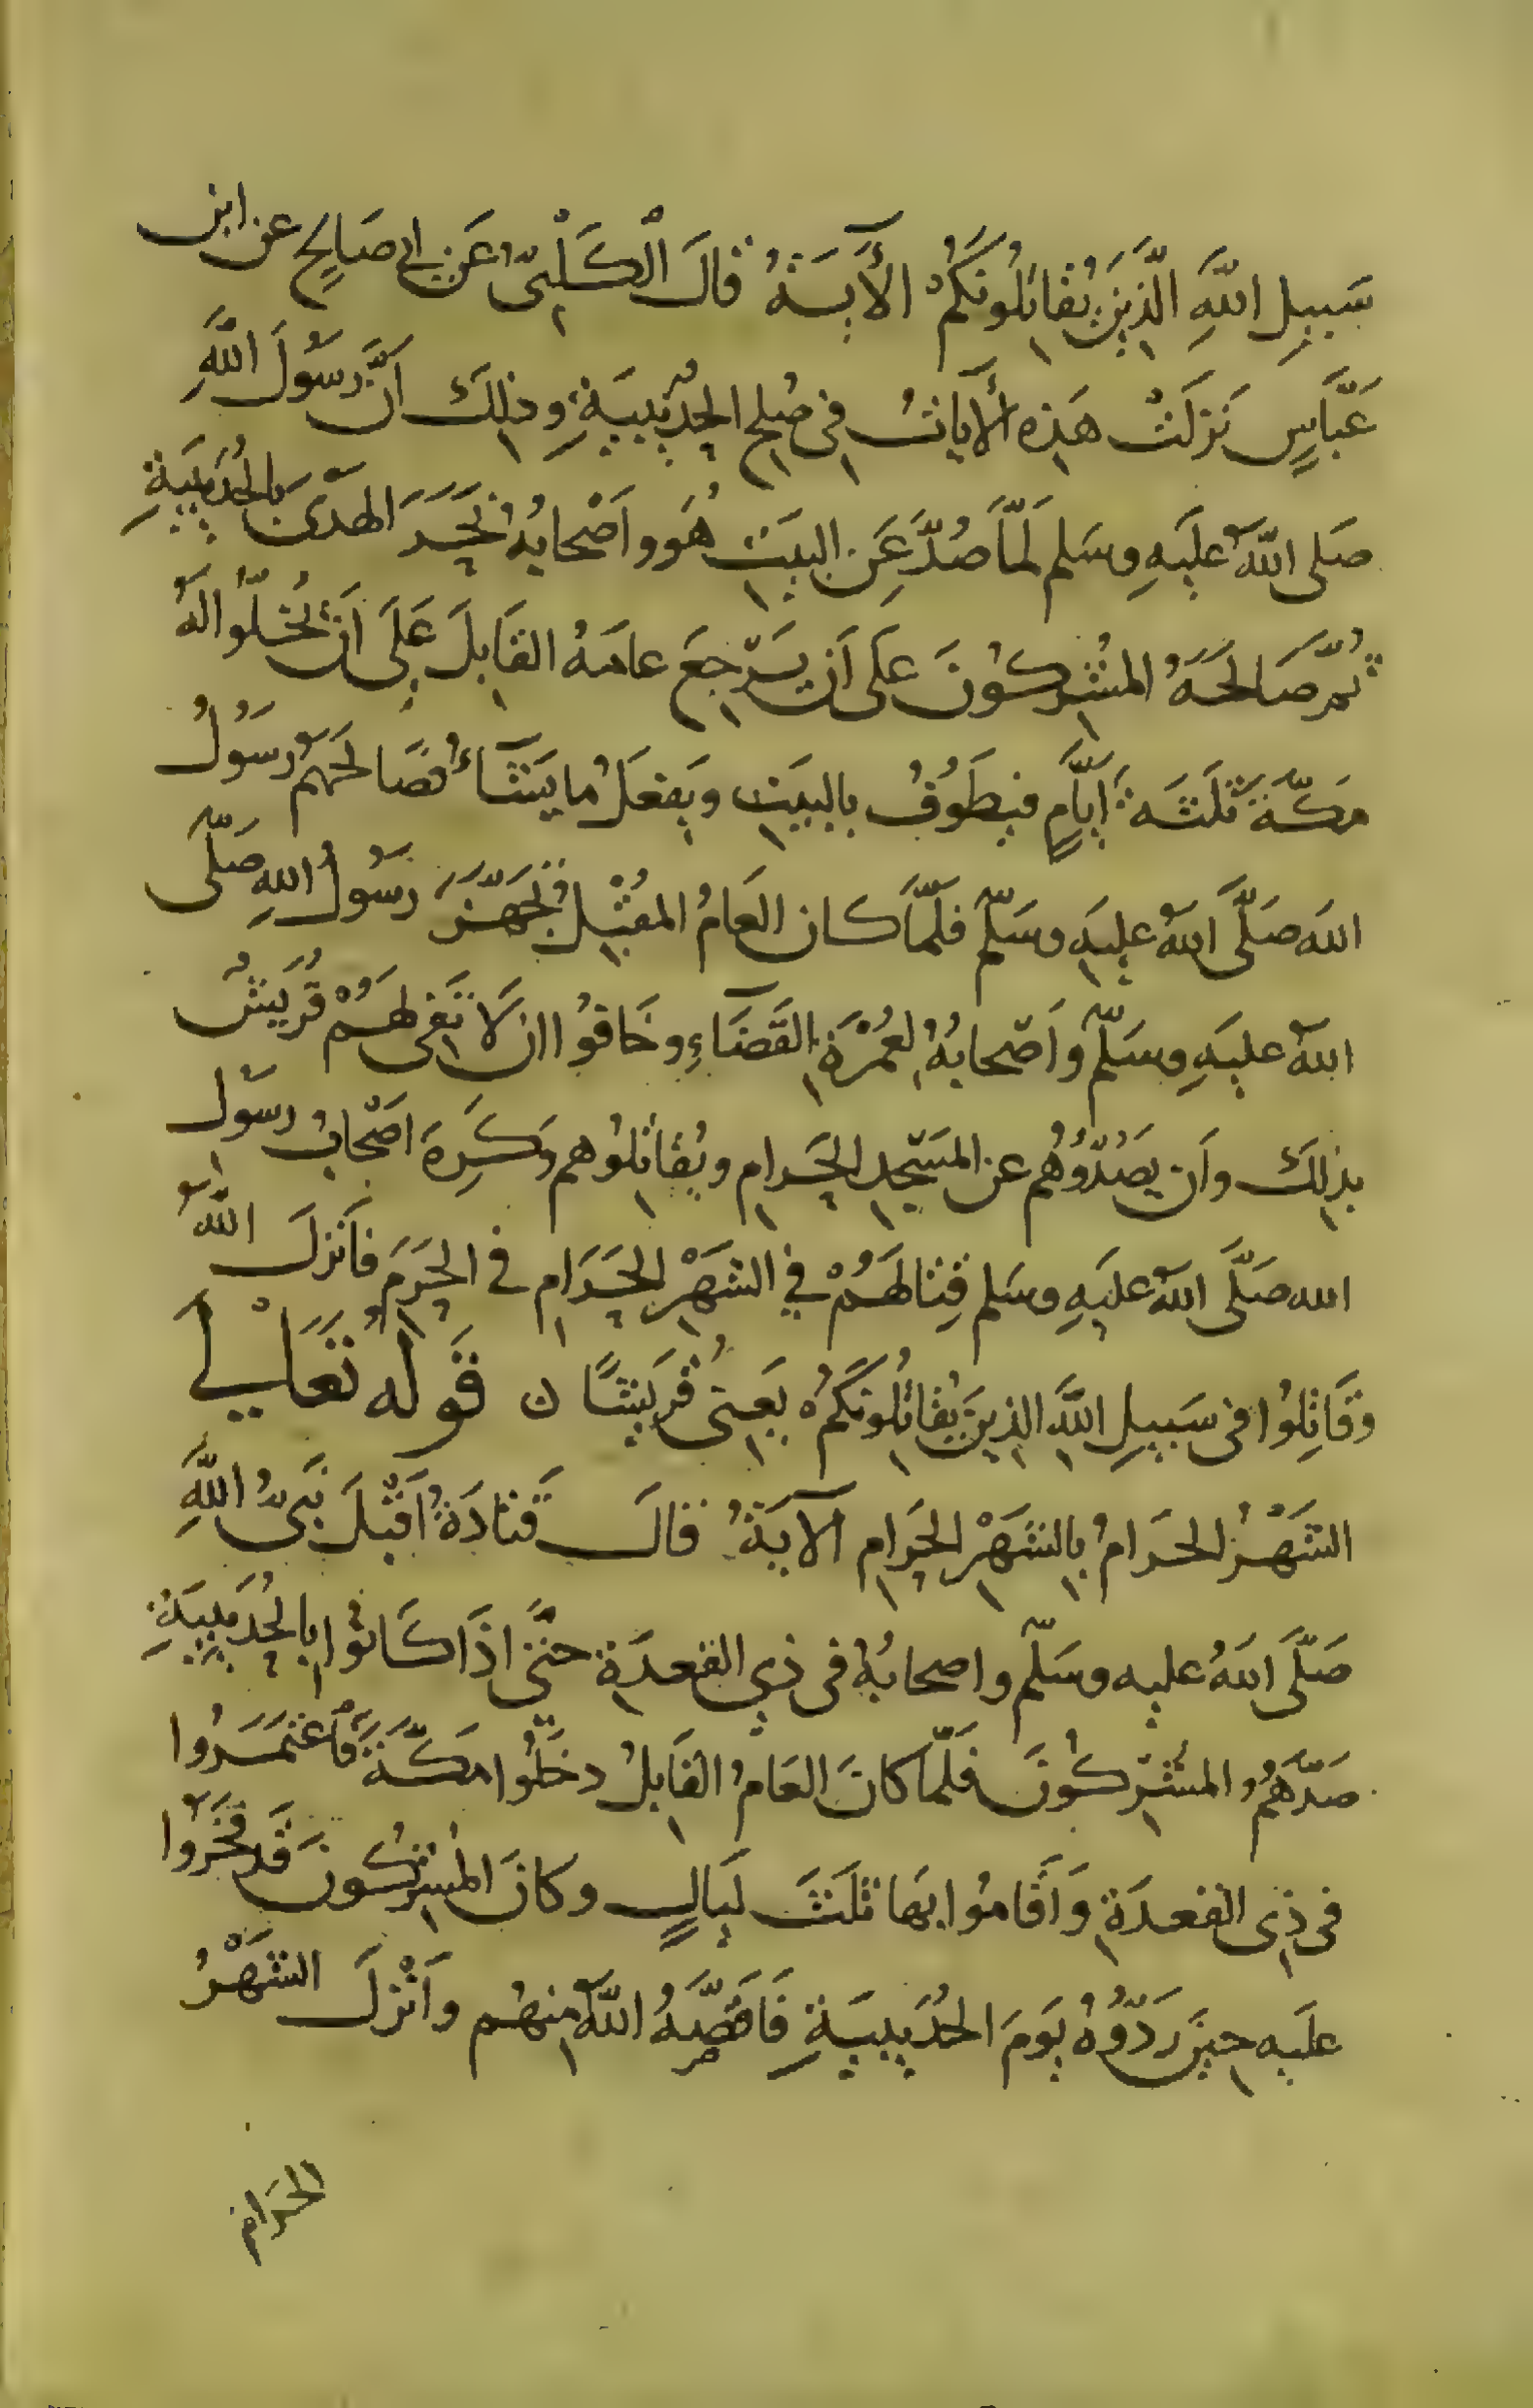 سَبيلِ اللَّهِ الَّذِينَ يُقَاتِلُونَكُمْ الآيَةُ قالَ الْكَلْبِىُّ عَن ابى صَالِحٍ عن ابن
عَبَّاسٍ نَزَلَتْ هَذِهِ الآيَاتُ فِى صُلحِ الحُدَيْبِيَةِ وذلِكَ اَنَّ رَسُولَ اللَّهِ
صَلى اللَّهُ عَلَيهِ وسَلم لَمَّا صُدَّ عَنِ البيَتِ هُوَ واَصْحابُهُ نَحَرَ الهَدْىَ بالحُدَيْبِيَةِ
ثُمَّ صَالَحَهُ المُشْرِكُونَ عَلَى اَن يَرْجِعَ عامَهُ القَابِلَ عَلَى اَنْ يُخَلُّوا لَهُ
مَكَّةَ ثَلَثَةَ اَيَّامٍ فيَطُوفُ بالبيَتِ ويَفعَلُ ما يَشَآءُ فصَالَحَهُمْ رَسُولُ
اللَه صَلَّى اللَّهُ عليَهِ وسَلّم فلَمَّا كان العَامُ المُقْبِلُ تَجَهَّزَ رَسُولُ اللهِ صَلَّى
اللَّهُ عليَهِ وسَلّم وَاَصْحابُهُ لِعُمْرَةِ القَضَآءِ وخَافوُا ان لَا تَفِى لَهُمْ قُرَيشٌ
بِذلِكَ وأَن يصُدُّوُهُم عن المَسْجِدِ الحَرامِ ويُقاتِلُوهم وَكَرِهَ اَصْحَابُ رسُولِ
الله صَلَّى اللَّهُ عليَهِ وسَلم قِتالَهُمْ في الشَهْرِ الحَرَامِ في الحَرَمِ فأَنزلَ اللَّهُ
وَقَاتِلُوا فى سَبيِلِ اللَّهِ الذِينَ يُقَاتِلُونكُمْ يَعنِى قُرَيشًا ن قَولهُ تَعَالَى
الشَهْرُ الحَرامُ بِالشَهْرِ الحَرامِ الآيَةُ قالَ قَتادَةُ اَقْبَلَ نَبِىُّ اللَّهِ
صَلَّى اللَّهُ عليه وسَلّم واصحابُهُ فى ذِي القعدَةِ حتَّى اذَا كَانوُا بالحُدَيبِيَةِ
صَدَّهُمُ المشْرِكُونَ فلَمَّا كانَ العَامُ القَابِلُ دخَلُوا مَكَّةَ فَاعْتَمَرُوا
فى ذِى القعدَةِ وَأَقَامُوا بهَا ثَلَثَ لَيالٍ وكانَ المُشرِكُونَ قَد فَخَرُوا
علَيه حِينَ رَدّوُهُ يوَمَ الحُدَيبِيَةِ فَأَقَصَّهُ اللَّهُ مِنهُم وأَنْزلَ الشَهْرُ
الحَرامُ